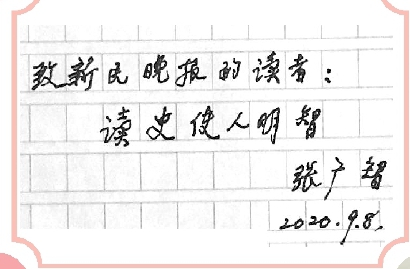 致新民晚报的读者:
读史使人明智
张广智
2020.9.8.